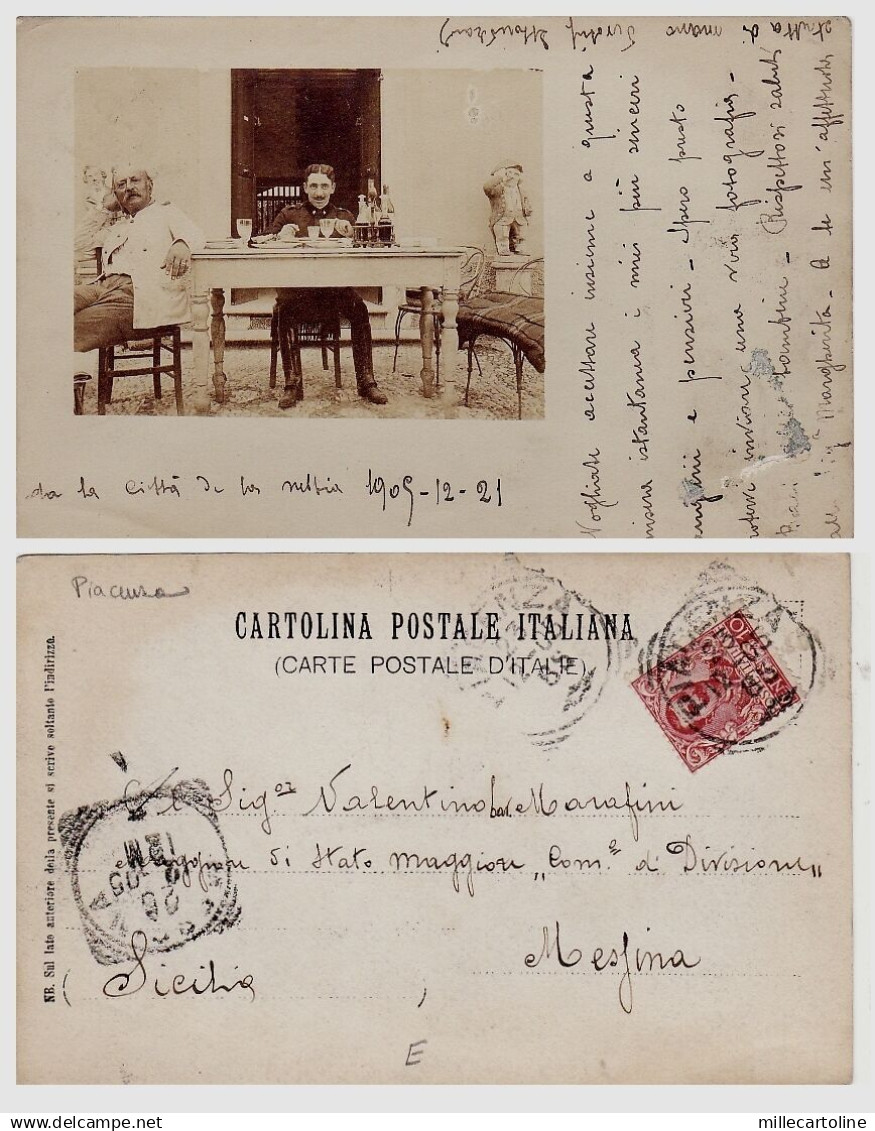 Vogliate accettare insieme a questa
misera istantanea i miei più sinceri
auguri e pensieri - Spero presto
potervi inviare una vera fotografia -
Baci bambine - Rispettosi saluti
alla Sig.a Margherita - A te un'affettuosa
stretta di mano
da la città de la nebbia 1905-12-21
Piacenza
CARTOLINA POSTALE ITALIANA
(CARTE POSTALE D'ITALIE)
NB. Sul lato anteriore della presente si scrive soltanto l'indirizzo.
PIACENZA
PIACENZA
Al Sigor Valentino bar. Marafini
Maggiore di Stato Maggiore „Com.o di Divisione„
Messina
(Sicilia)
E
millecartoline